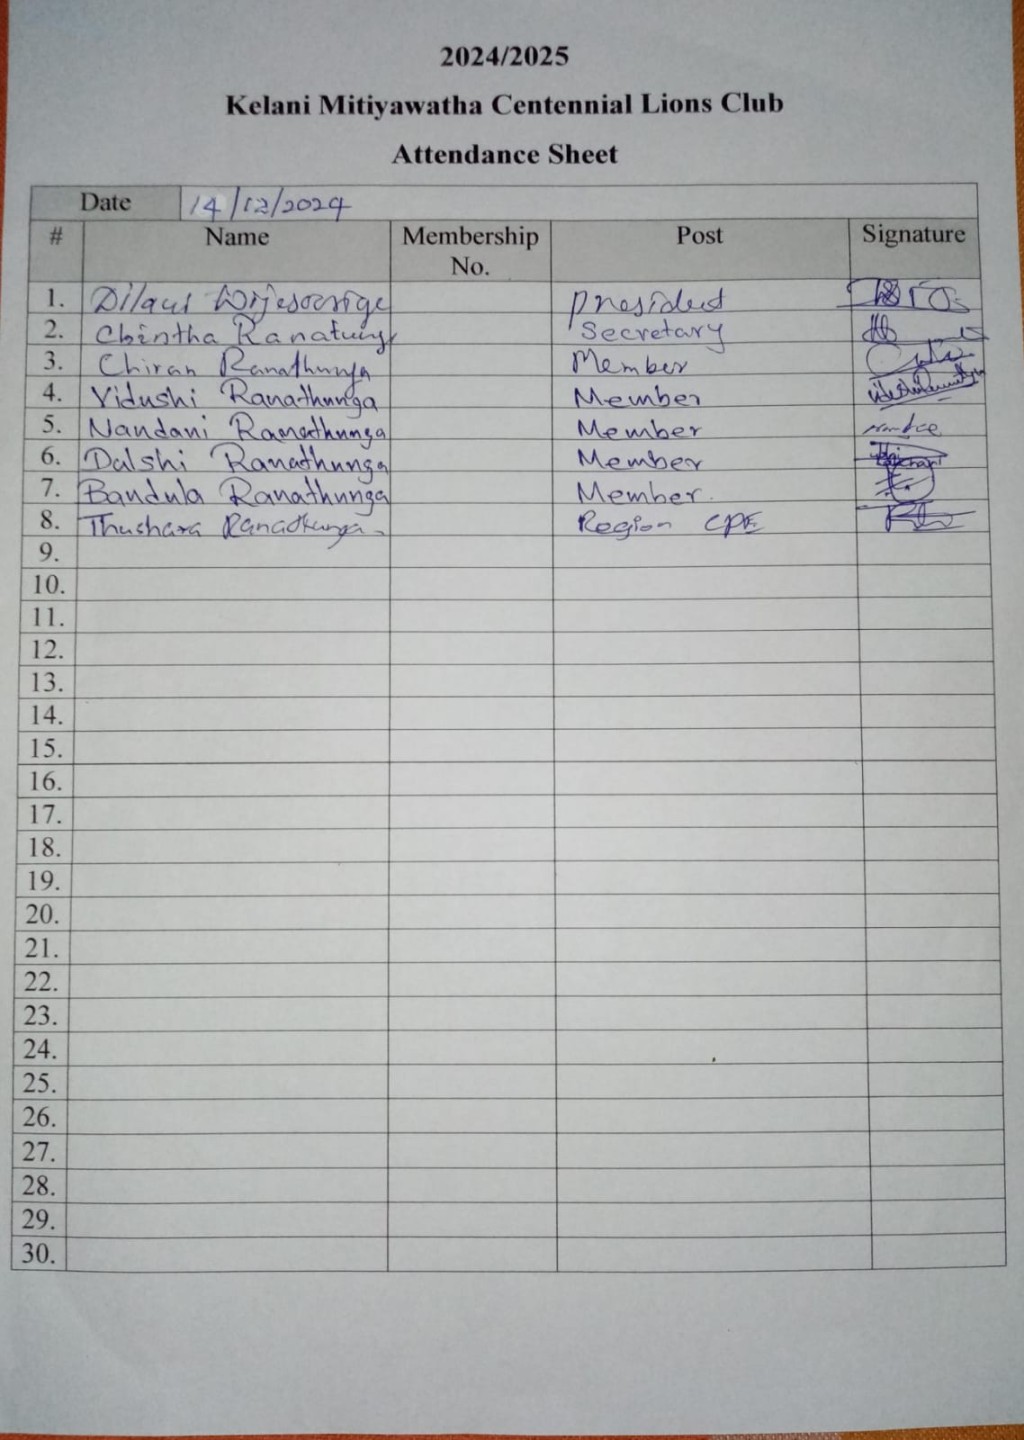 2024/2025
Kelani Mitiyawatha Centennial Lions Club
Attendance Sheet
Date 14/12/2024
# Name Membership No. Post Signature
1. President
2. Chintha Ranatunga Secretary
3. Chiran Ranathunga Member
4. Vidushi Ranathunga Member
5. Nandani Ranathunga Member
6. Dalshi Ranathunga Member
7. Bandula Ranathunga Member.
8. Thushara Ranathunga Region CPE
9.
10.
11.
12.
13.
14.
15.
16.
17.
18.
19.
20.
21.
22.
23.
24.
25.
26.
27.
28.
29.
30.